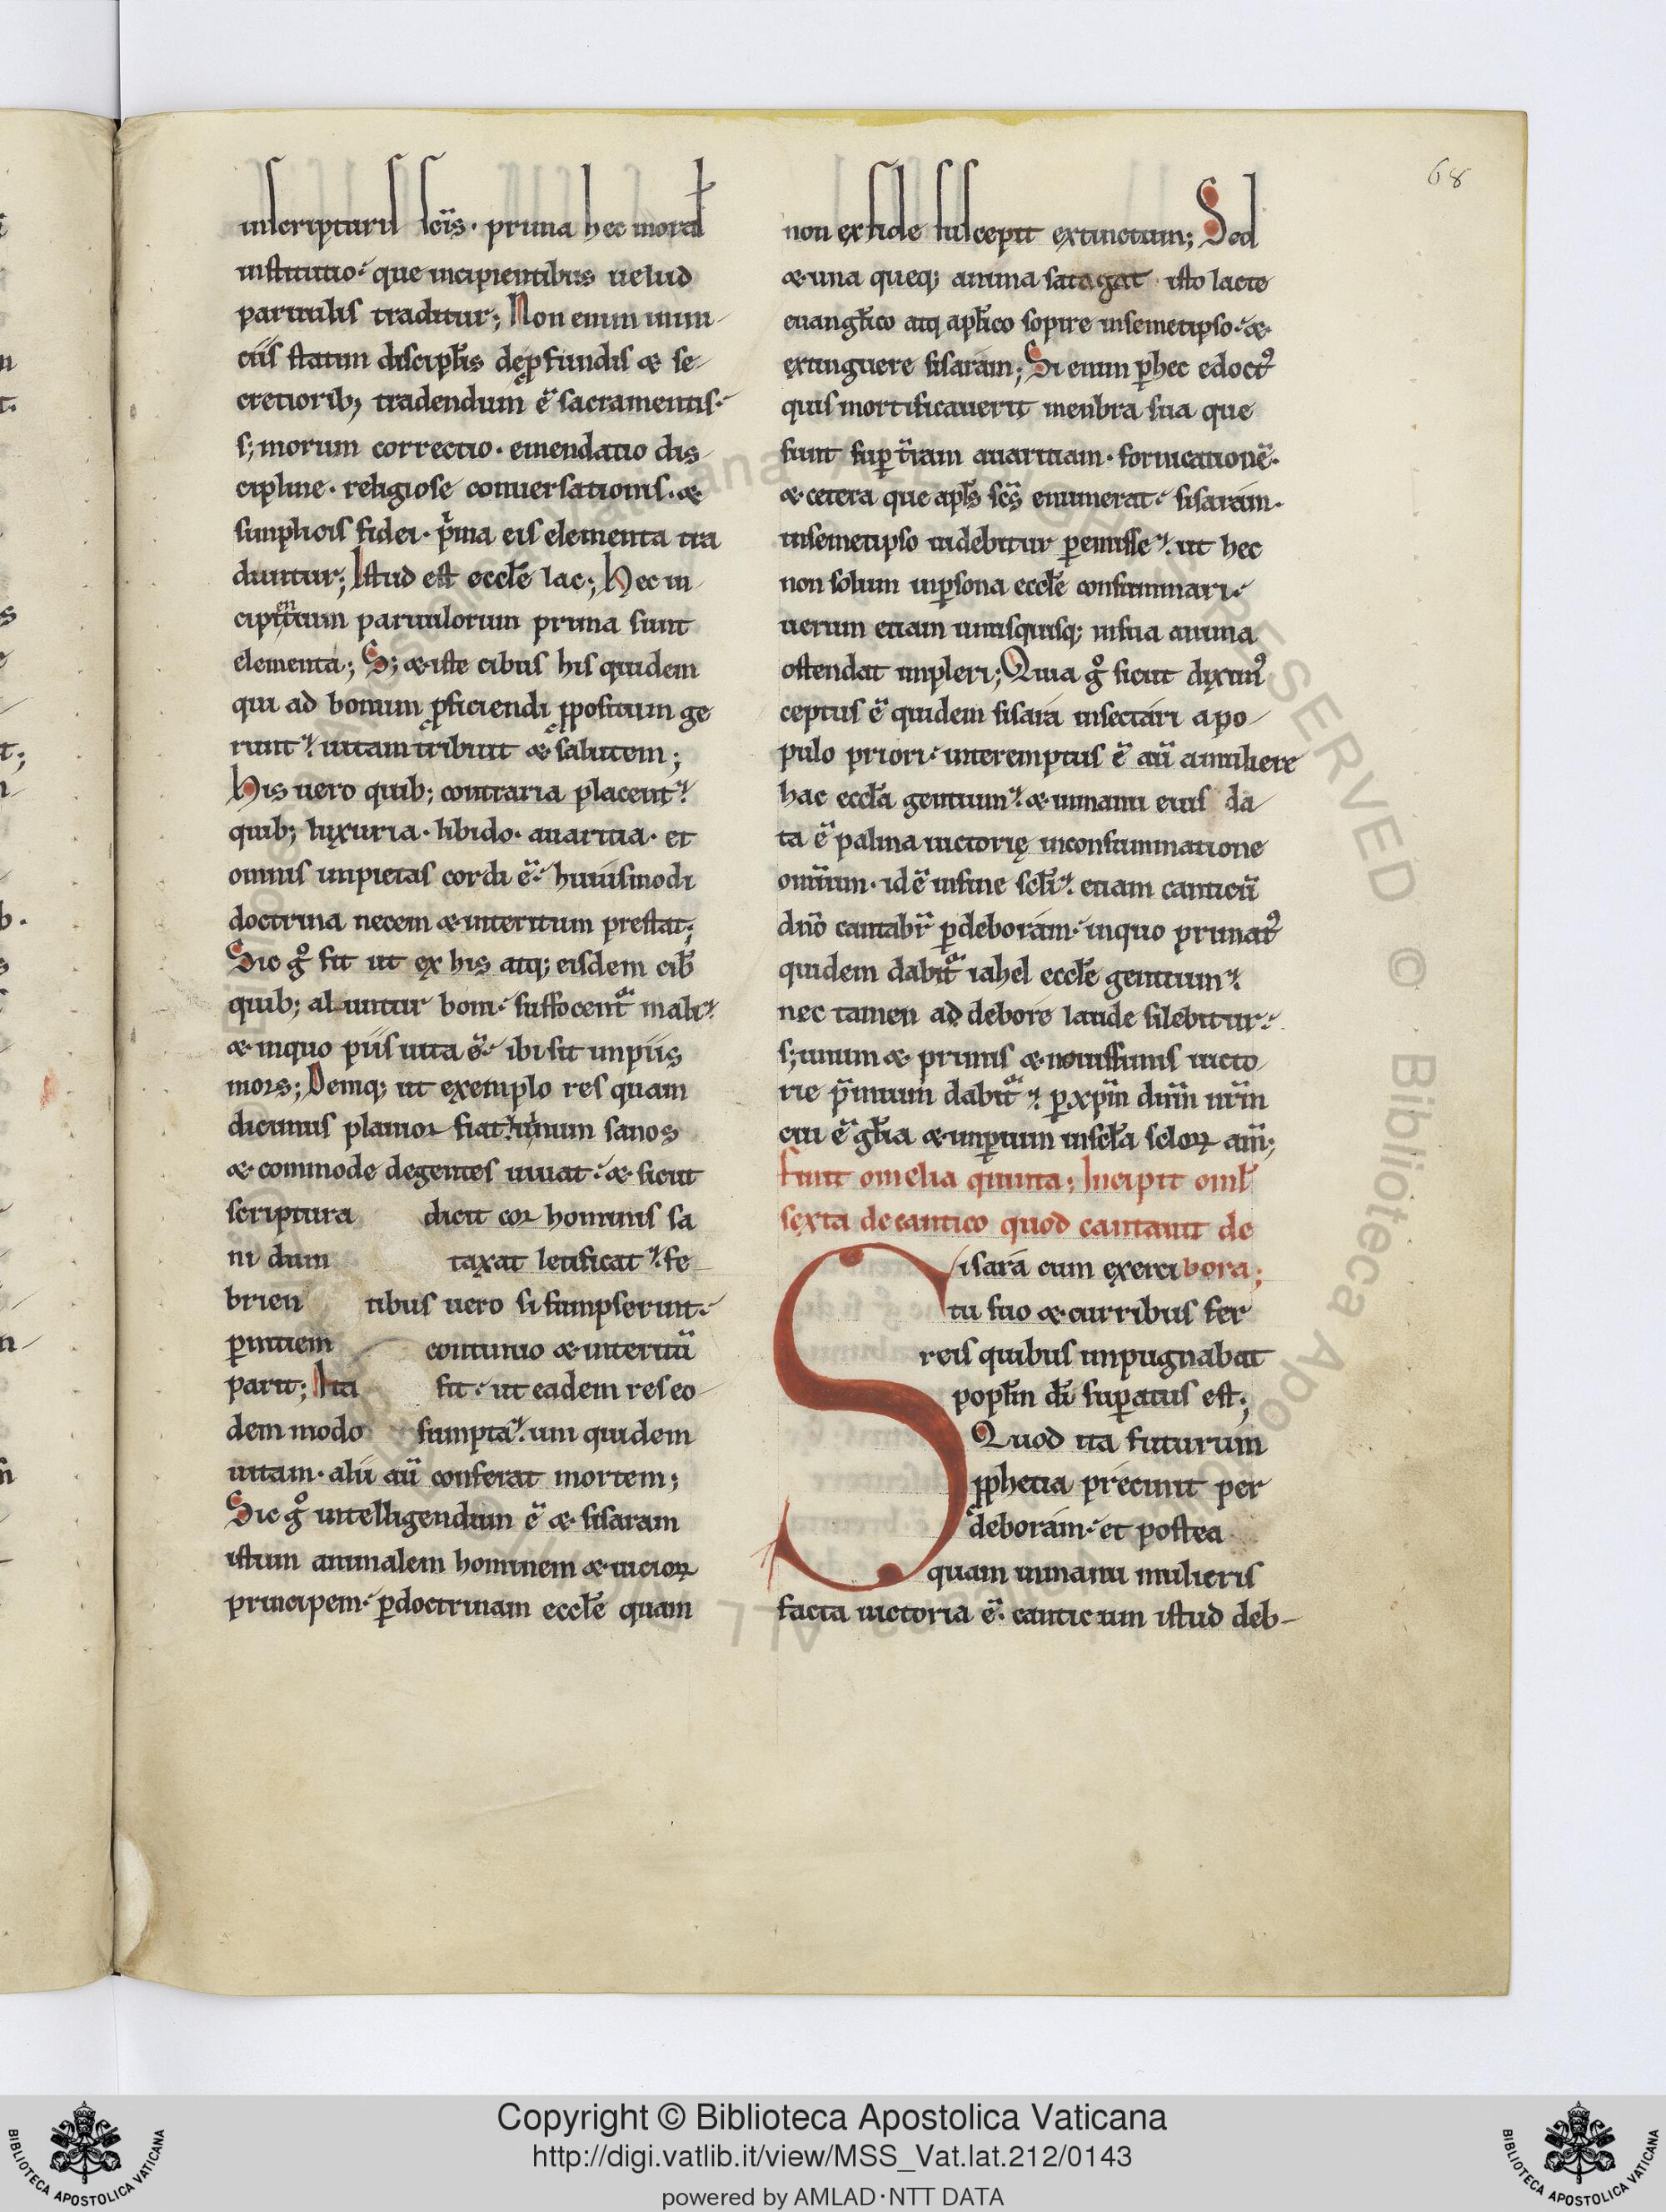 68
inscripturis sc̄is · prima hec moral̄
institutio · que incipientibus uelud
paruulis traditur; Non enim inini
ciis statim discipl̄is de ꝓfundis & se
cretiorib; tradendum ē sacramentis ·
s; morum correctio · emendatio dis
cipline · religiose conuersationis · &
simplicis fidei · p̄ma eis elementa tra
duntur; Istud est eccl̄e lac; Hec in
cipientium paruulorum prima sunt
elementa; S; & iste cibus his quidem
qui ad bonum ꝓficiendi ꝓpositum ge
runt · uitam tribuit & salutem;
His uero quib; contraria placent ·
quib; luxuria · libido · auaritia · et
omnis impietas cordi ē · huiusmodi
doctrina necem & interitum prestat;
Sic g° fit ut ex his atq; eisdem cib̄
quib; aluntur boni · suffocent᷑ mali ·
& inquo piis uita ē · ibi sit impiis
mors; Deniq; ut exemplo res quam
dicimus planior fiat · uinum sanos
& commode degentes iuuat · & sicut
scriptura dicit cor hominis sa
ni dum taxat letificat · fe
brien tibus uero si sumpserint ·
ꝑnitiem continuo & interitū
parit; Ita fit · ut eadem res eo
dem modo sumpta · uni quidem
uitam · alii aū conferat mortem;
Sic g° intelligendum ē & sisaram
istum animalem hominem & uicioꝝ
principem · ꝑ doctrinam eccl̄e quam
non ex fide suscepit extinctum; Sed
& una queq; anima satagat isto lacte
euangl̄ico atq apl̄ico sopire insemetipso · &
extinguere sisaram; Si enim ꝑ hec edoct᷒
quis mortificauerit menbra sua que
sunt suꝑ t̄ram auaritiam · fornicationē ·
& cetera que apl̄s sc̄s enumerat · sisaram ·
insemetipso uidebitur ꝑemisse · ut hec
non solum inꝑsona eccl̄e consummari ·
uerum etiam unusquisq; insua anima
ostendat impleri; Quia g° sicut dixim᷒
ceptus ē quidem sisara insectari apo
pulo priori · interemptus ē aū a muliere
hac eccl̄a gentium · & inmanu eius da
ta ē palma uictorię inconsummatione
omīum · id ē infine sc̄li · etiam canticū
dn̄o cantabr̄ ꝑ deboram · inquo primat᷒
quidem dabit᷑ iahel eccl̄e gentium ·
nec tamen ad debore laude silebitur ·
s; unum & primis & nouissimis uicto
rie p̄mium dabit᷑ · ꝑ xp̄m dn̄m nr̄m
cui ē gl̄ia & imperium insc̄la sc̄loꝝ am̄;
finit omelia quinta; Incipit omel̄
sexta decantico quod cantauit de
bora;
Sisara cum exerci
tu suo & curribus fer
reis quibus inpugnabat
popl̄m dī suꝑatus est;
Quod ita futurum
ꝓphetia precinit per
deboram · et postea
quam inmanu mulieris
facta uictoria ē · canticum istud deb-
Copyright © Biblioteca Apostolica Vaticana
http://digi.vatlib.it/view/MSS_Vat.lat.212/0143
powered by AMLAD·NTT DATA
BIBLIOTECA APOSTOLICA VATICANA
BIBLIOTECA APOSTOLICA VATICANA